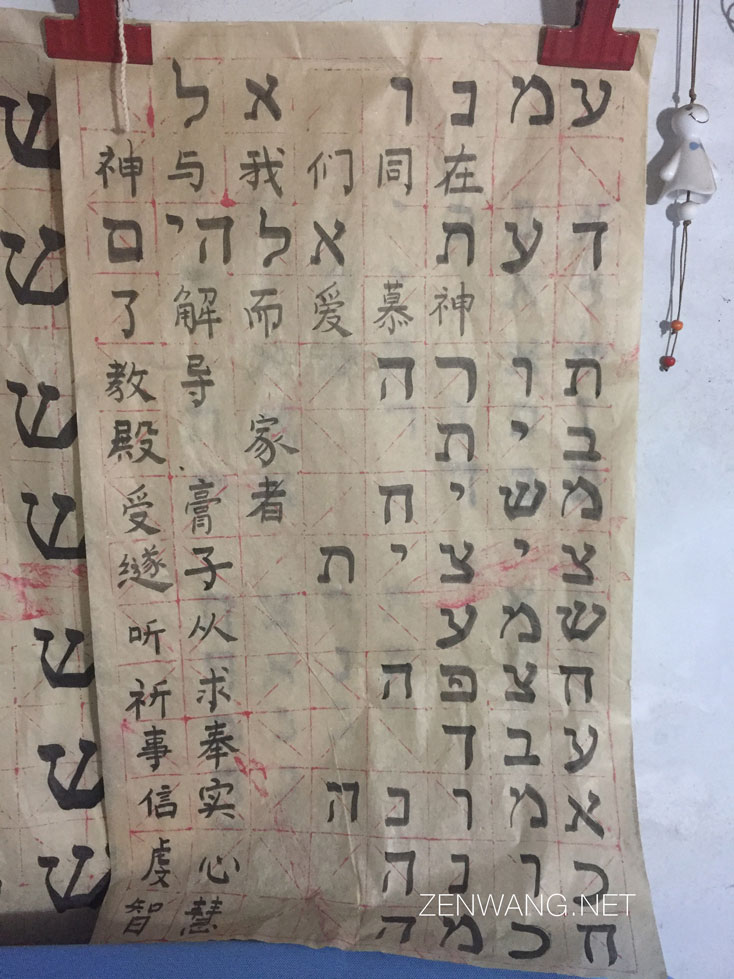 עמנו אל
神与我们同在
דעת אלהים
了解而爱慕神
תורה 教导
בית 殿 家
משיח 受膏者
ציצית 繸子
שמע 听从
חצפה 祈求
עבד 事奉
אמונה 信实
כונה 虔心
חכמה 智慧
ש
ש
ש
ש
ש
ש
ש
ZENWANG.NET